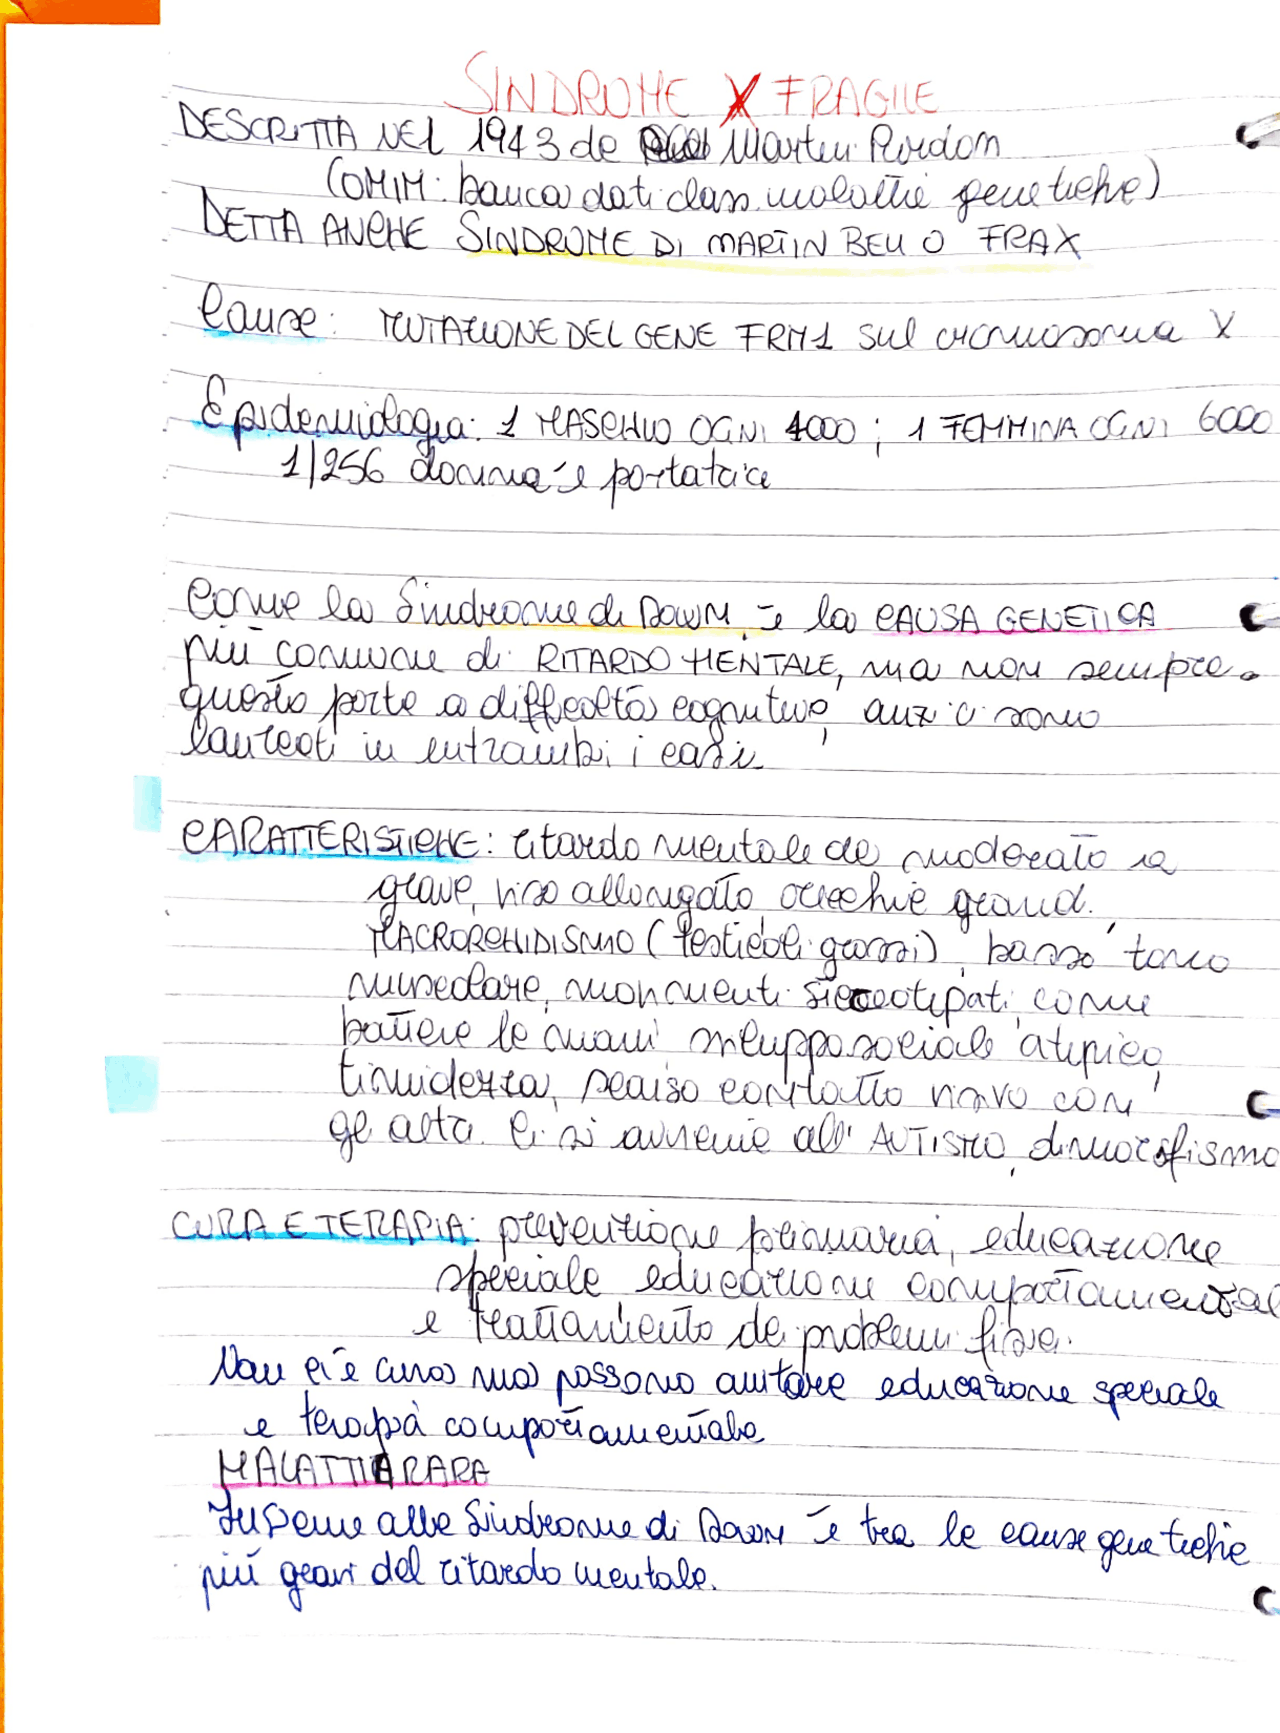 SINDROME X FRAGILE
DESCRITTA NEL 1943 da Martin Purdom
(OMIM: banca dati class. malattie genetiche)
DETTA ANCHE SINDROME DI MARTIN BELL O FRAX
Cause: MUTAZIONE DEL GENE FRM1 sul cromosoma X
Epidemiologia: 1 MASCHIO OGNI 4000; 1 FEMMINA OGNI 6000
1/256 donna è portatrice
Come la Sindrome di Down, è la CAUSA GENETICA
più comune di RITARDO MENTALE, ma non sempre
questo porta a difficoltà cognitive, anzi ci sono
laureati in entrambi i casi
CARATTERISTICHE: ritardo mentale da moderato a
grave, viso allungato orecchie grandi,
MACRORCHIDISMO (testicoli grossi), basso tono
muscolare, movimenti stereotipati, come
battere le mani, sviluppo sociale atipico,
timidezza, scarso contatto visivo con
gli altri. Ci si avvicina all' AUTISMO, dimorfismo
CURA E TERAPIA: prevenzione primaria, educazione
speciale educazione comportamentale
e trattamento dei problemi fisici.
Non ci è cura ma possono aiutare educazione speciale
e terapia comportamentale
MALATTIA RARA
Insieme alla Sindrome di Down è tra le cause genetiche
più gravi del ritardo mentale.